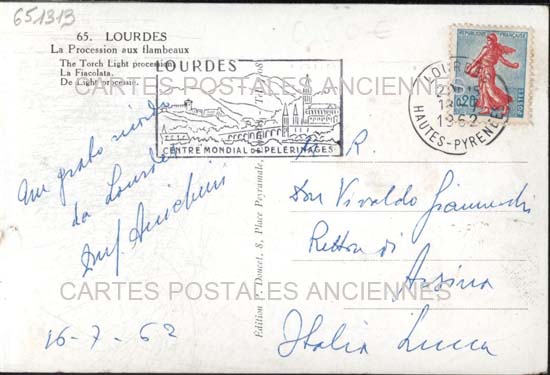 651313
65. LOURDES
La Procession aux flambeaux
The Torch Light procession
La Fiacolata.
De Light processie.
LOURDES
CENTRE MONDIAL DE PELERINAGES
REPUBLIQUE FRANÇAISE
0,20
POSTES
1962
HAUTES-PYRENEES
CARTES POSTALES ANCIENNES
Un grato ricordo
da Lourdes
16-7-62
Edition P. Doucet, 8, Place Peyramale,
R.
Don Vivaldo
Rettore di
Italia Lucca
CARTES POSTALES ANCIENNES